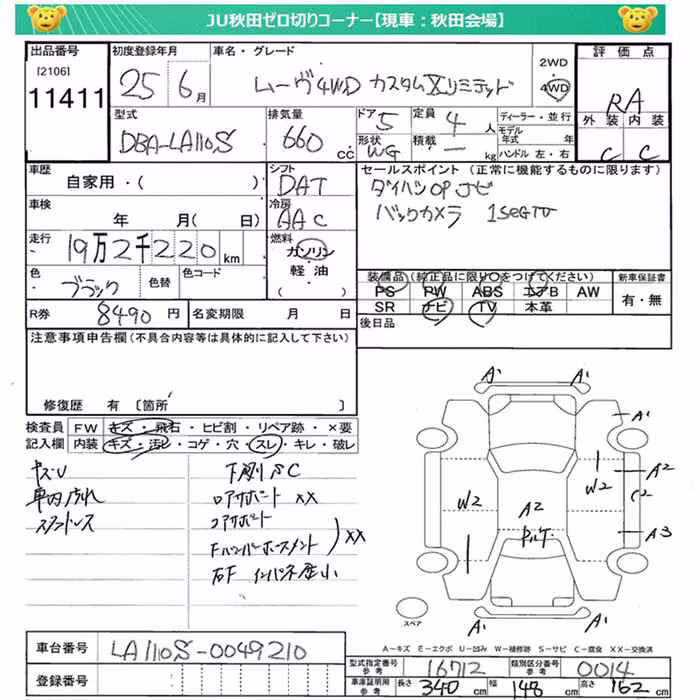 JU秋田ゼロ切りコーナー【現車：秋田会場】
出品番号 初度登録年月 車名・グレード 評価点
[2106] 11411
25 6月
ムーヴ4WD カスタムXリミテッド
2WD 4WD
RA
型式 DBA-LA110S
排気量 660cc
ドア 5 定員 4人
形状 WG 積載 - kg
ディーラー・並行
モデル年式 年
ハンドル 左・右
外装 内装
C C
車歴 自家用・( )
シフト DAT
セールスポイント (正常に機能するものに限ります)
ダイハツOPナビ
バックカメラ 1SEGTV
車検 年 月( 日)
冷房 AAC
走行 19万2千220km
燃料 ガソリン 軽油 ( )
色 ブラック 色替 色コード
装備品 (純正品に限り〇をつけてください) 新車保証書
PS PW ABS エアB AW
SR ナビ TV 本革
有・無
R券 8490円 名変期限 月 日
後日品
注意事項申告欄(不具合内容等は具体的に記入して下さい)
修復歴 有 [箇所 ]
検査員記入欄
FW キズ・飛石・ヒビ割・リペア跡・×要
内装 キズ・汚レ・コゲ・穴・スレ・キレ・破レ
キズ・U
車内汚れ
スタットレス
下廻りSC
コアサポート XX
コアサポート
Fバンパーホースメント ) XX
右F インパネ歪小
A1 A1
A1
W2 W2 A2
C2
A2
A3
A1 A1
スペア
A-キズ E-エクボ U-凹み W-補修跡 S-サビ C-腐食 XX-交換済
車台番号 LA110S-0049210
登録番号
型式指定番号(参考) 16712 類別区分番号(参考) 0014
車庫証明用(参考) 長さ 340cm 幅 148cm 高さ 162cm